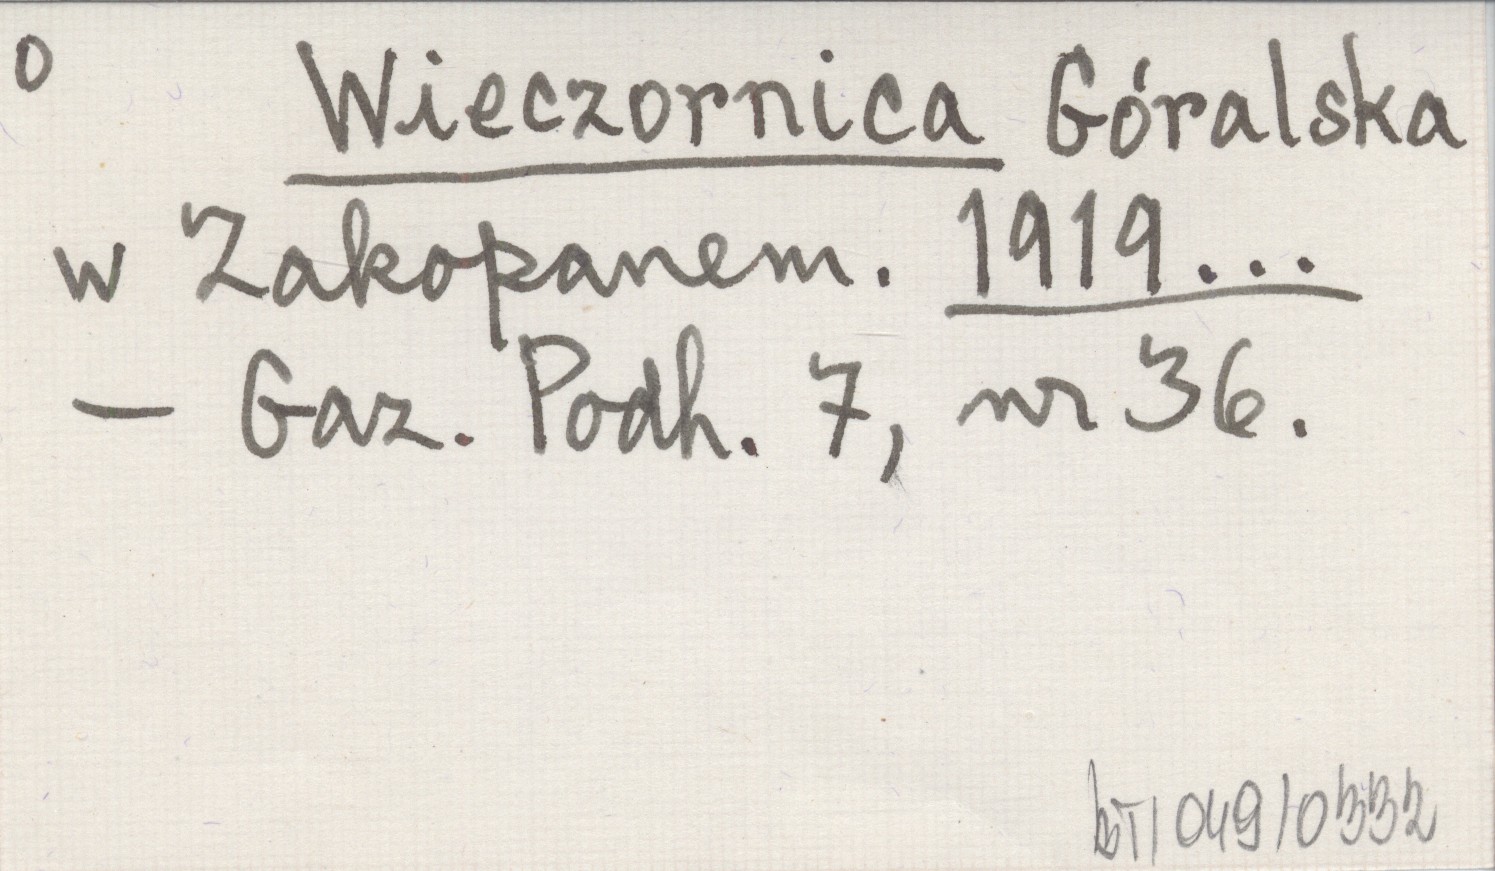 o Wieczornica Góralska
w Zakopanem. 1919...
— Gaz. Podh. 7, nr 36.
049/0332